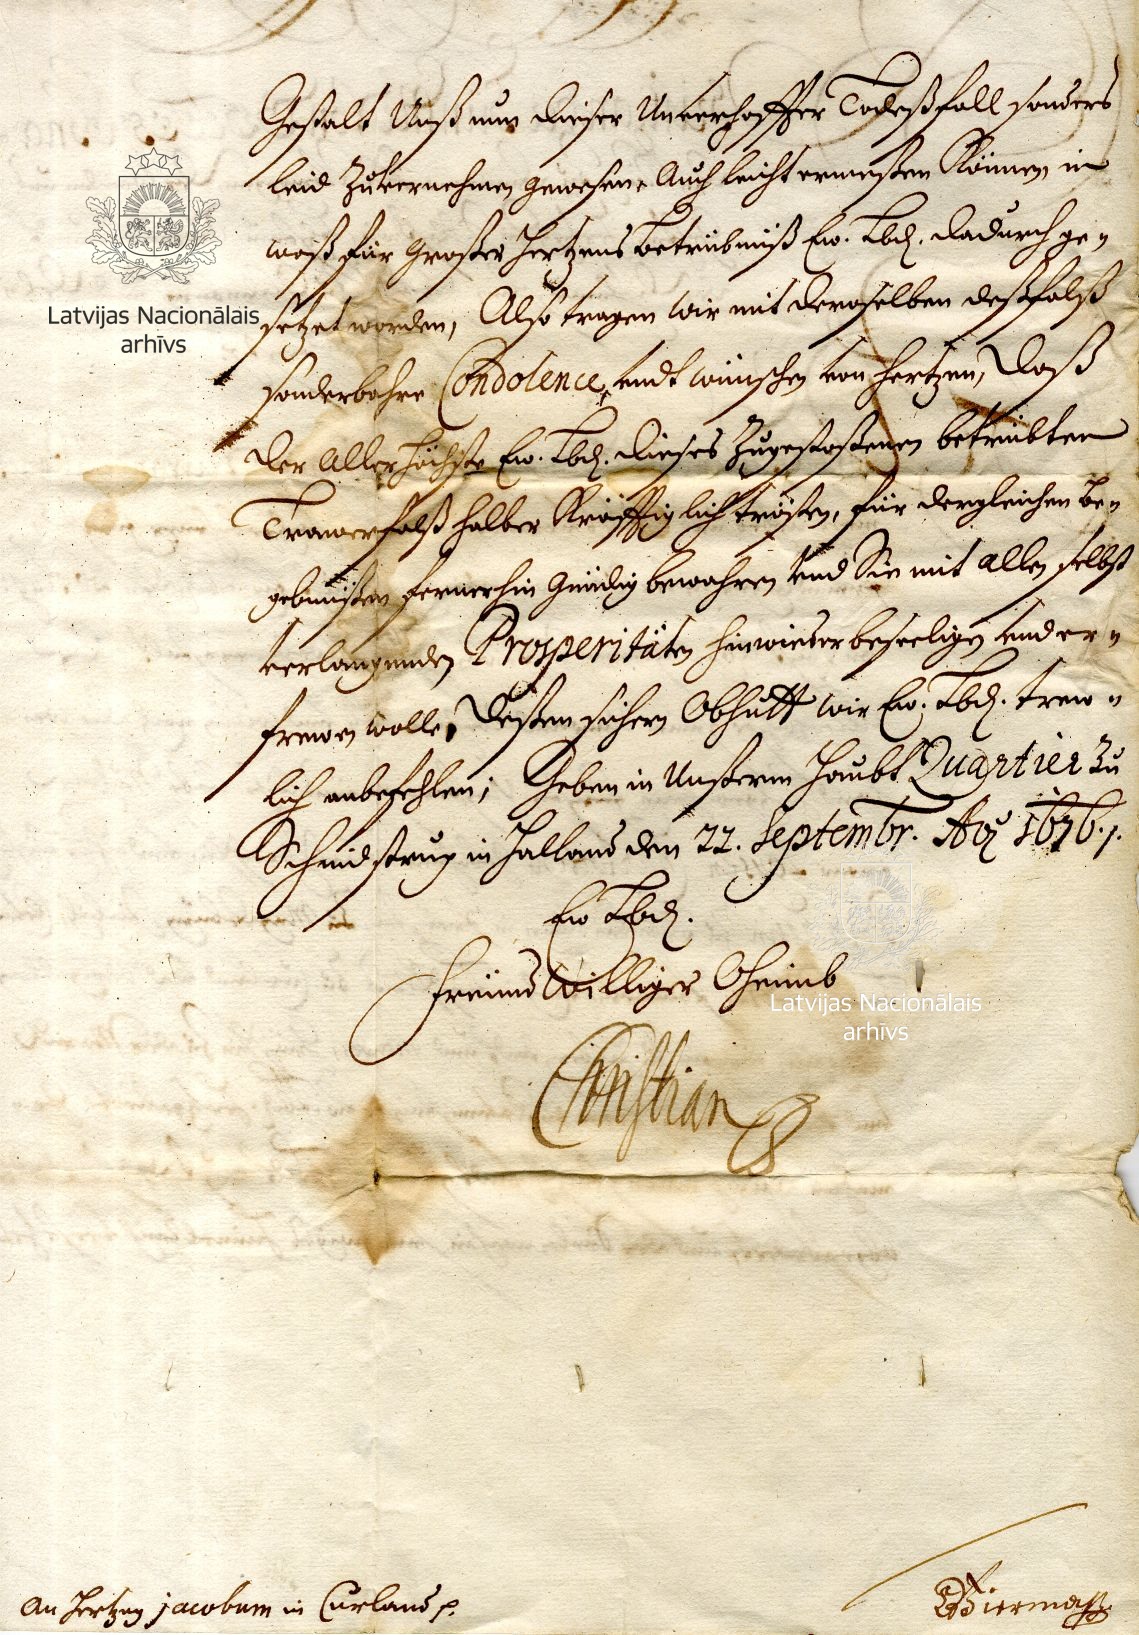 Gestalt Unß nun dieser Unverhoffter Todeßfall sonders
leid Zuvernehmen gewesen, Auch leicht ermeßen Können, in
waß für großer Hertzens Betrübnüß Ew. Lbd. dadurch ge-
setzet worden, Also tragen wir mit deroselben deßfalß
sonderbahre Condolence, undt wünschen von Hertzen, Daß
der Allerhöchste Ew. Lbd. dieses Zugestoßenen betrübten
Trawerfalß halber Kräfftiglich trösten, für dergleichen Be-
gebnüßen fernerhin gnädig bewahren Und Sie mit allen selbst
verlangenden Prosperitäten hinwieder beseeligen und er-
frewen wolle, Deßen sichern Obhutt wir Ew. Lbd. trew-
lich anbefehlen; Geben in Unßerm Haubt Quartier Zu
Schmidstrup in Halland den 22. Septembr. Ao 1676.
Ew Lbd.
Freündwilliger Oheimb
Christian
An Hertzog Jacobum in Curland p.
Biermann
Latvijas Nacionālais
arhīvs
Latvijas Nacionālais
arhīvs